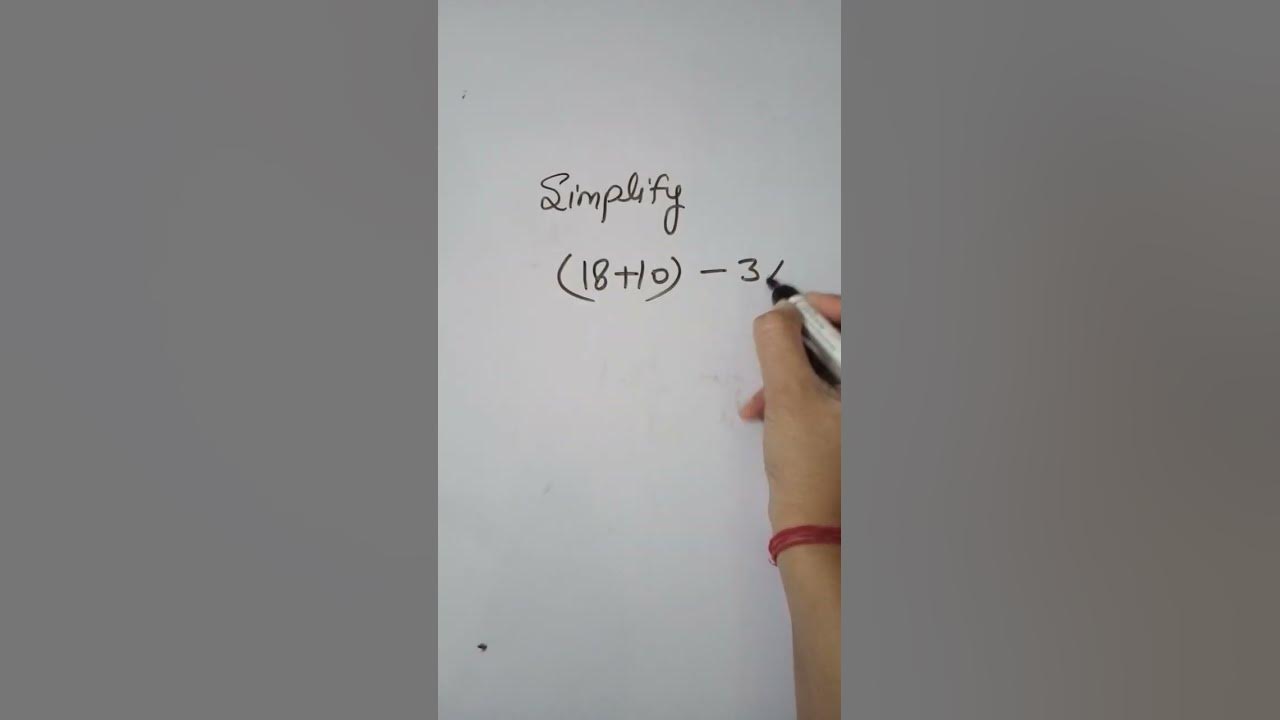 Simplify
(18+10) - 3